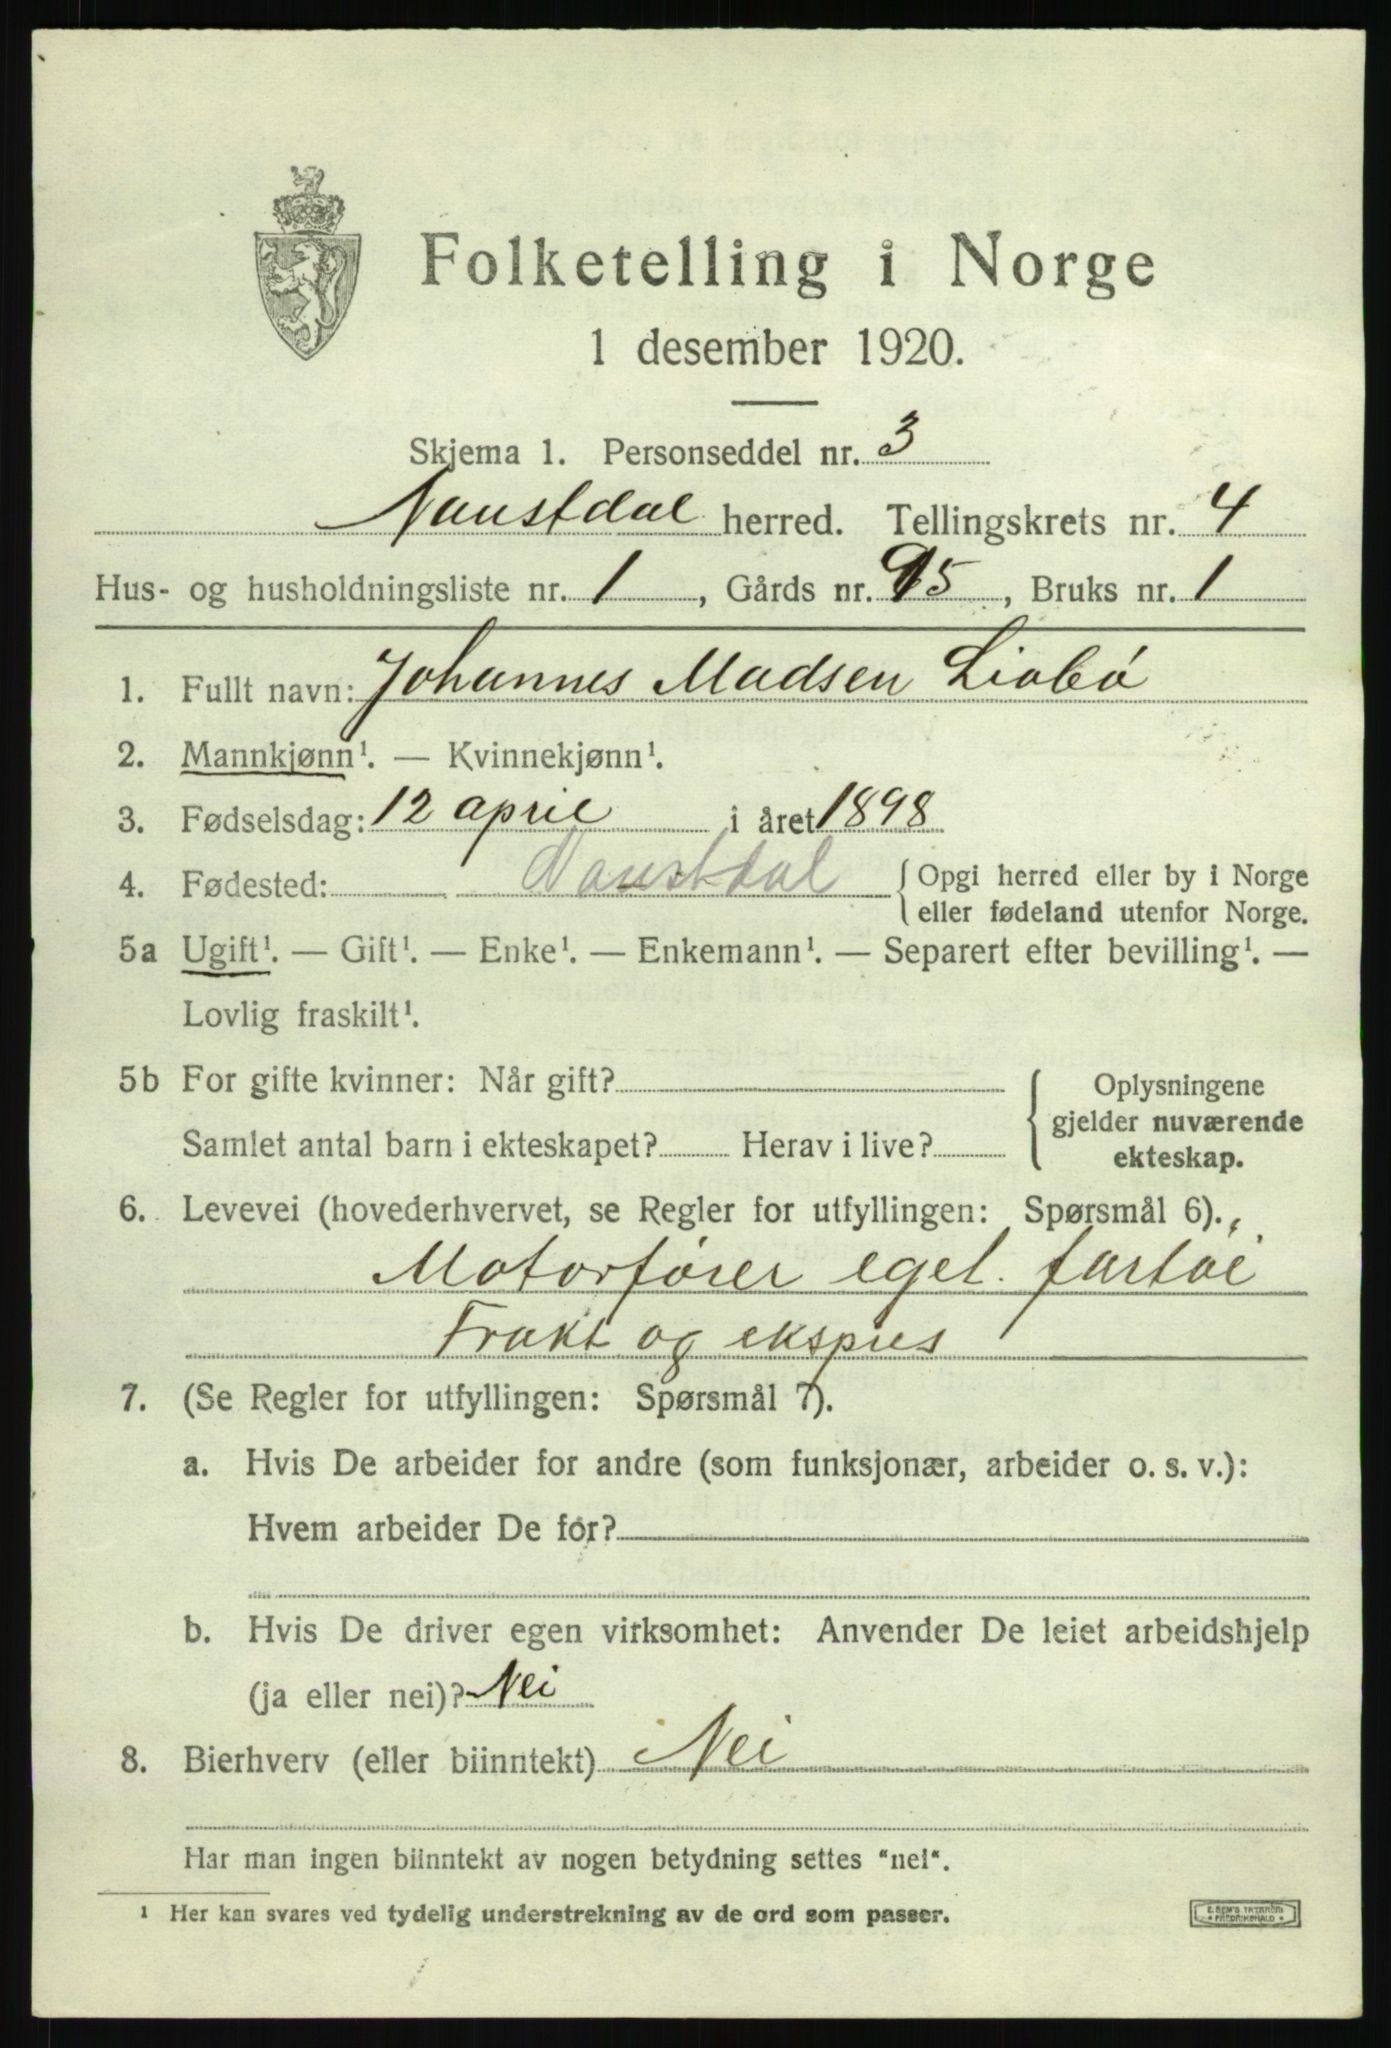 Folketelling i Norge
1 desember 1920.
Skjema 1. Personseddel nr. 3
Naustdal herred. Tellingskrets nr. 4
Hus- og husholdningsliste nr. 1, Gårds nr. 95, Bruks nr. 1
1. Fullt navn: Johannes Madsen Liabö
2. Mannkjønn¹. — Kvinnekjønn¹.
3. Fødselsdag: 12 april i året 1898
4. Fødested: Naustdal { Opgi herred eller by i Norge
eller fødeland utenfor Norge.
5a Ugift¹. — Gift¹. — Enke¹. — Enkemann¹. — Separert efter bevilling¹. —
Lovlig fraskilt¹.
5b For gifte kvinner: Når gift?
Samlet antal barn i ekteskapet? Herav i live?
Oplysningene
gjelder nuværende
ekteskap.
6. Levevei (hovederhvervet, se Regler for utfyllingen: Spørsmål 6).
Motorförer eget. fartöi
Frakt og ekspres
7. (Se Regler for utfyllingen: Spørsmål 7).
a. Hvis De arbeider for andre (som funksjonær, arbeider o. s. v.):
Hvem arbeider De for?
b. Hvis De driver egen virksomhet: Anvender De leiet arbeidshjelp
(ja eller nei)? Nei
8. Bierhverv (eller biinntekt) Nei
Har man ingen biinntekt av nogen betydning settes "nei".
¹ Her kan svares ved tydelig understrekning av de ord som passer.